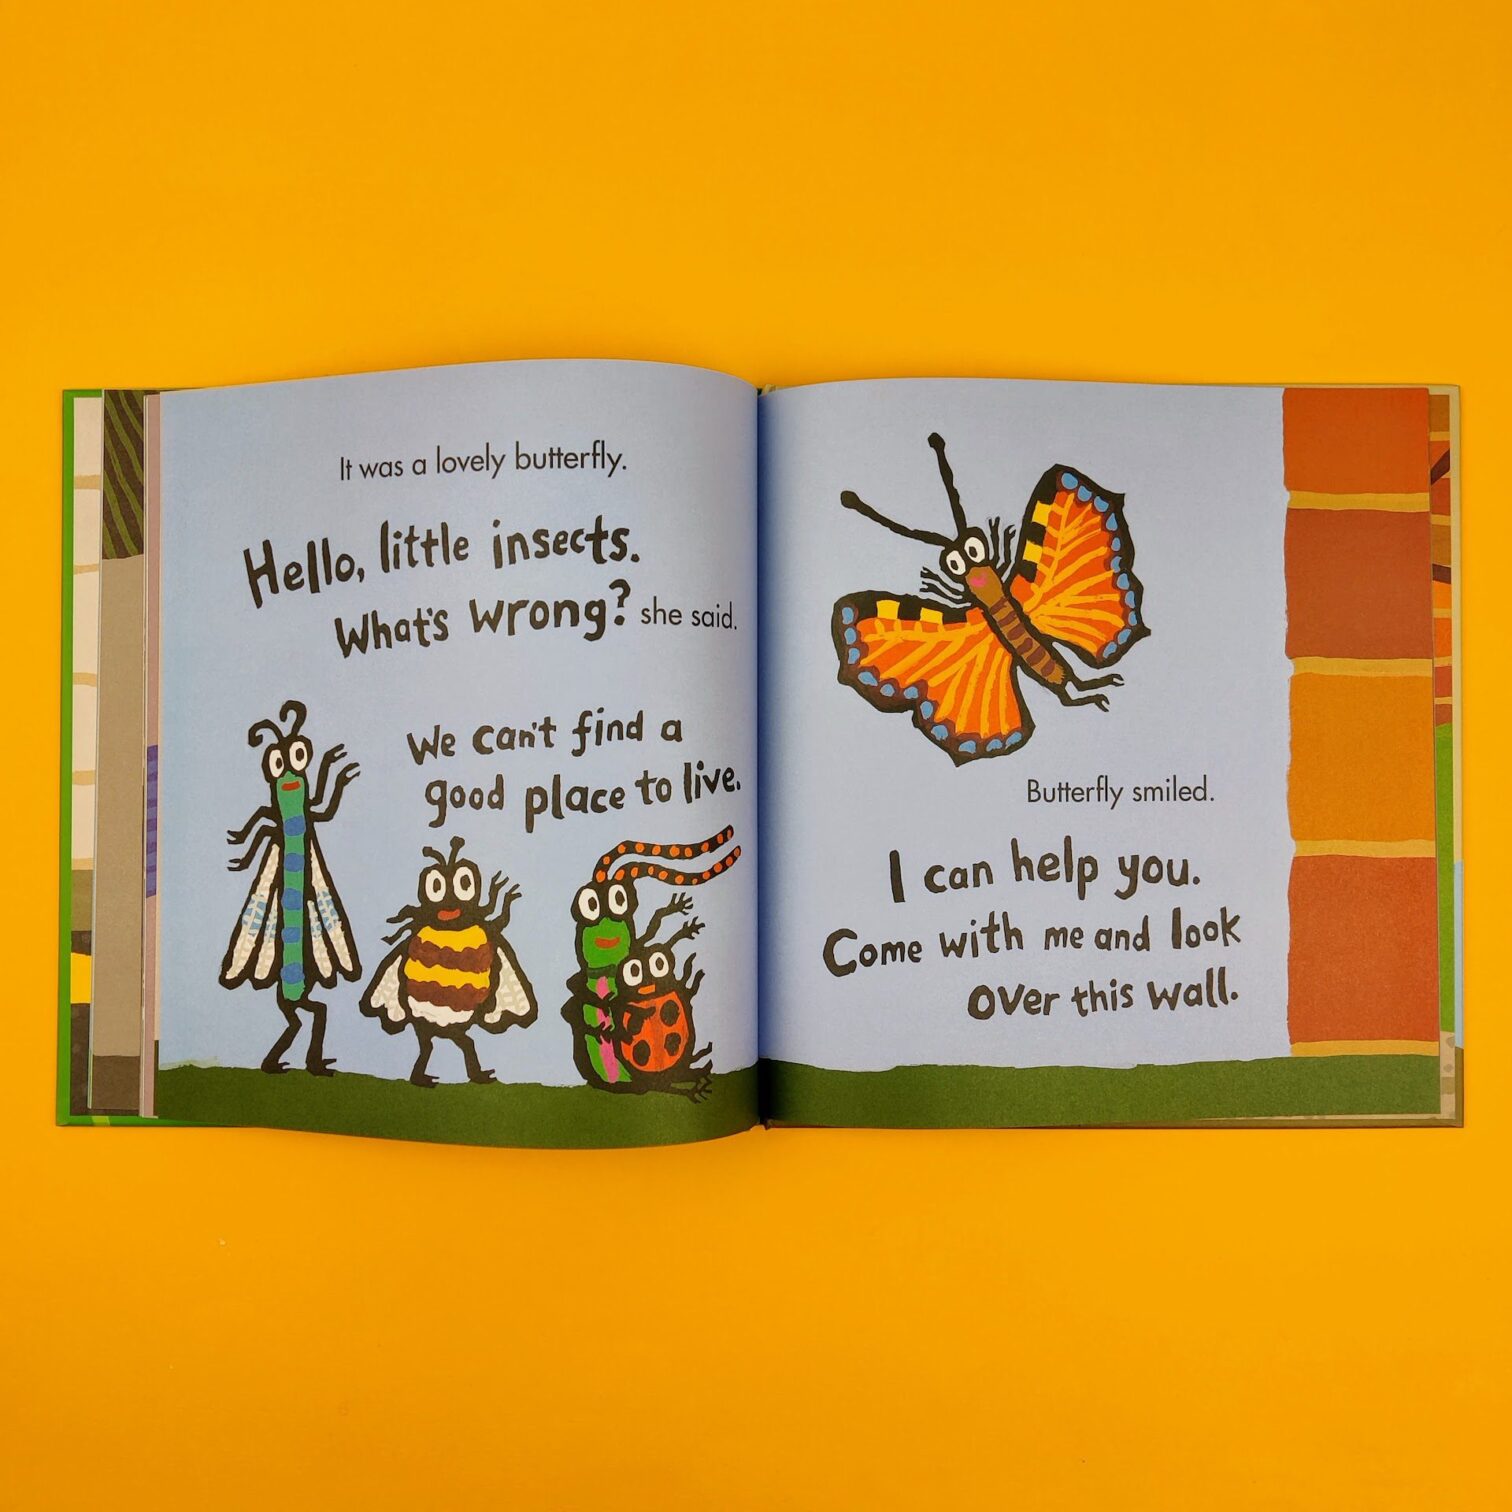 It was a lovely butterfly.
Hello, little insects.
What's wrong? she said.
We can't find a
good place to live.
Butterfly smiled.
I can help you.
Come with me and look
over this wall.